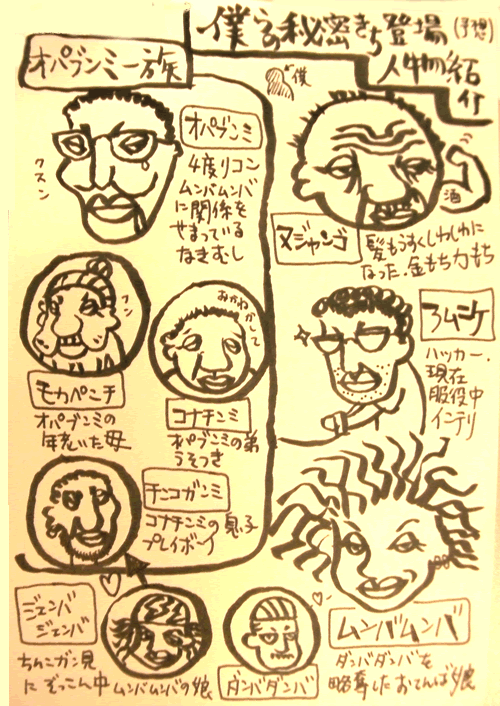 僕らの秘密きち登場(予想)
人物紹介
オパブンミ一族
僕
オパブンミ
4度リコン
ムンバムンバ
に関係を
せまっている
なきむし
クスン
フン
モカペニチ
オパブンミの
年老いた母
おかねかして
コナチンミ
オパブンミの弟
うそつき
チンコガンミ
コナチンミの息子
プレイボーイ
酒
ヌジャンゴ
髪もうすくしわしわに
なった.金もち力もち
ラムシケ
ハッカー.
現在
服役中
インテリ
ジェンバ
ジェンバ
ちんこガン見
にぞっこん中
ムンバムンバの娘
ダンバダンバ
ムンバムンバ
ダンバダンバを
略奪したおてんば娘